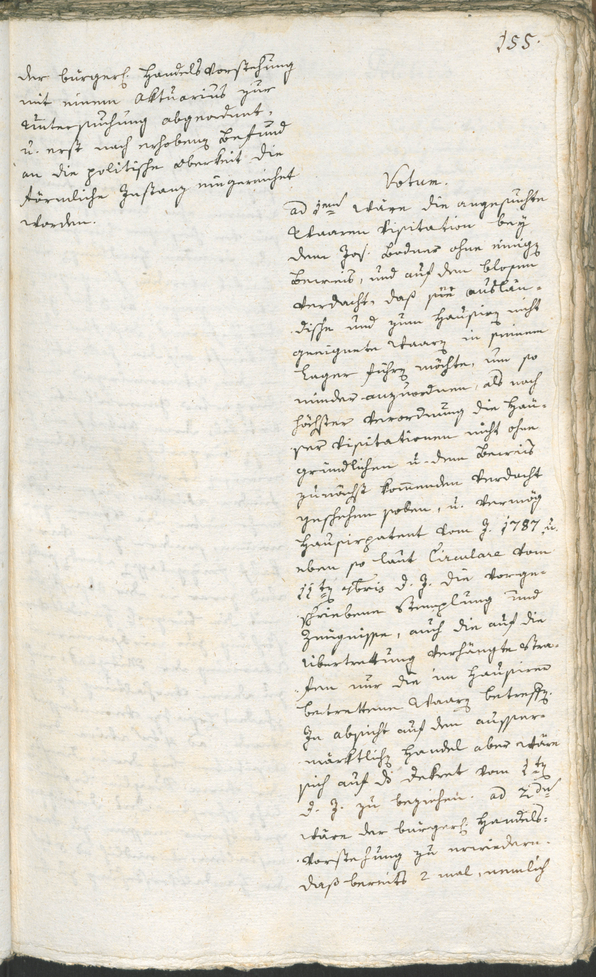 155.
der bürgerl. Handelsvorstehung
mit einem Aktuarius zur
Untersuchung abgeordnet,
u. erst nach erhobenen Befund
an die politische Oberkeit die
förmliche Anzeig eingereichet
worden.
Votum.
ad 1mum wäre die angesuchte
Waaren Visitation bey
dem Jos. Bodner ohne einige
Beweis, und auf den blosen
Verdacht, daß sie auslän-
dische und zum Hausiren nicht
geeignete Waaren in seinem
Lager führen möchte, um so
minder anzuordnen, als nach
höchster Verordnung die Häu-
ser Visitationen nicht ohne
gründlichen u. dem Beweis
zunächst kommenden Verdacht
geschehen sollen, u. vermög
Hausirpatent vom J. 1787 u.
eben so laut Circulare vom
11ten d. J. die vorge-
schriebene Stemplung und
Zeugnisse, auch die auf die
Übertrettung verhängte Stra-
fen nur die im Hausiren
betrettene Waaren betreffen.
In absicht auf den ausser-
märktlichen Handel aber wäre
sich auf das Dekret vom 1ten
d. J. zu beziehen. ad 2dum
wäre der bürgerl. Handels-
vorstehung zu erwiedern.
daß bereits 2 mal, nemlich